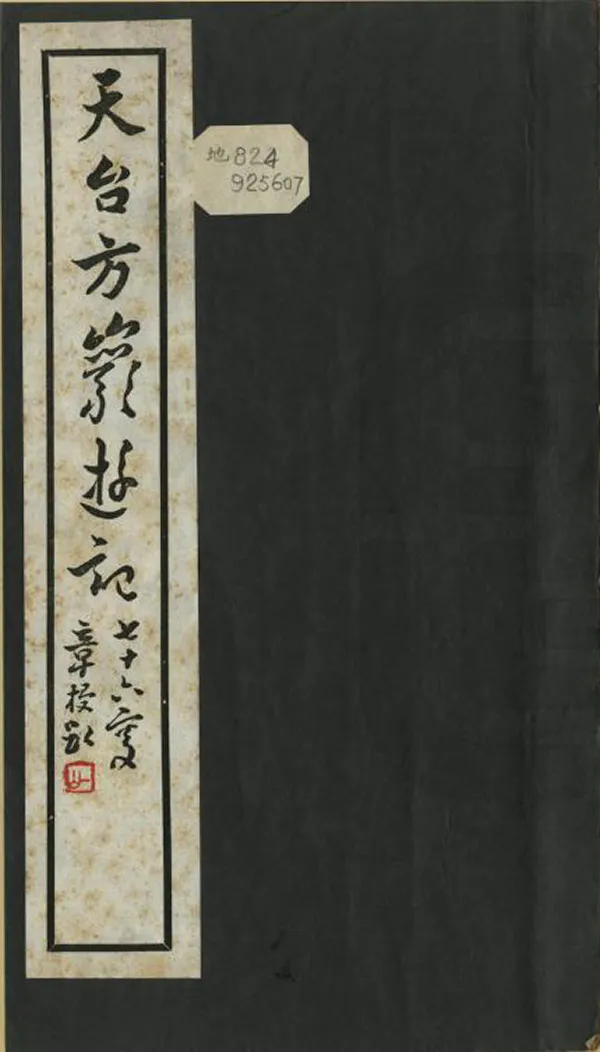 天台方巖遊記
七十六叟
章梫題
地824
925607